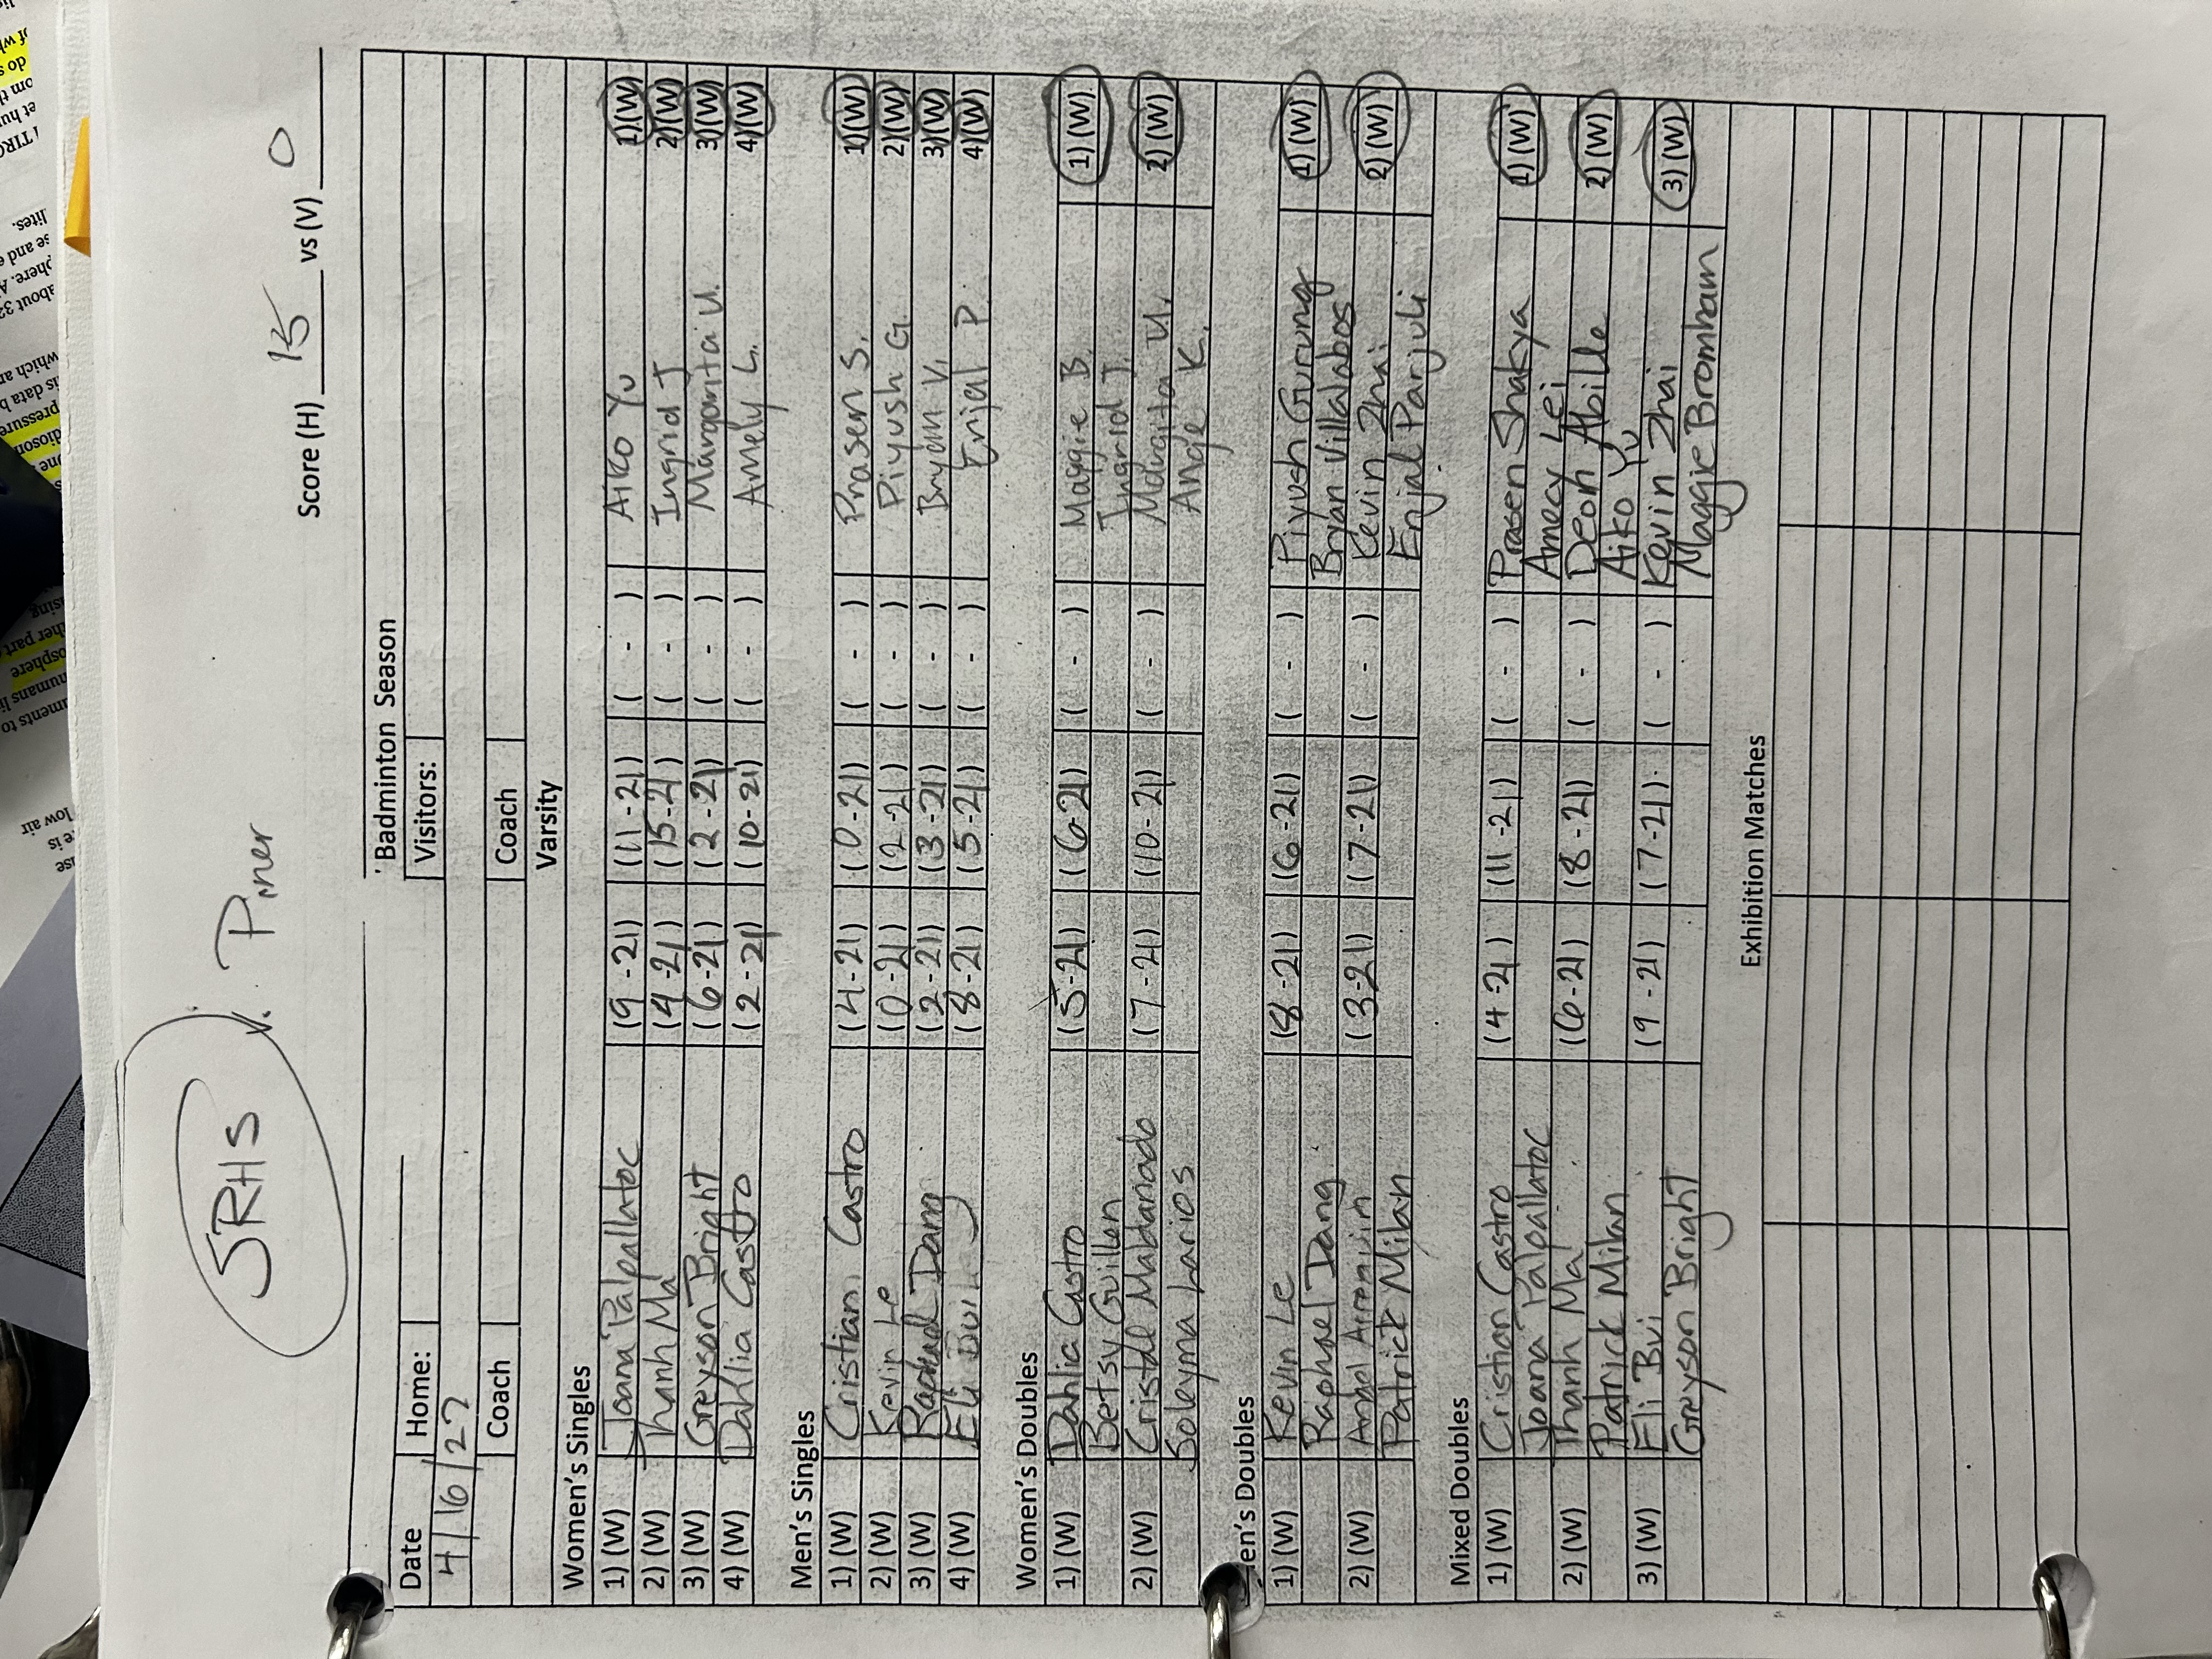 SRHS v. Piner
Score (H) 15 vs (V) 0
Badminton Season
Date Home: Visitors:
4/16/22
Coach Coach
Varsity
Women's Singles
1) (W) Joana Palpallatoc (9-21) (11-21) ( - ) Aiko Yu 1) (W)
2) (W) Thanh Ma (4-21) (15-21) ( - ) Ingrid J 2) (W)
3) (W) Greyson Bright (6-21) (2-21) ( - ) Margarita U. 3) (W)
4) (W) Dahlia Castro (2-21) (10-21) ( - ) Amely L. 4) (W)
Men's Singles
1) (W) Cristian Castro (4-21) (0-21) ( - ) Prasen S. 1) (W)
2) (W) Kevin Le (0-21) (2-21) ( - ) Piyush G. 2) (W)
3) (W) Raphael Dang (2-21) (3-21) ( - ) Bryan V. 3) (W)
4) (W) Eli Bui (8-21) (5-21) ( - ) Enjal P. 4) (W)
Women's Doubles
1) (W) Dahlia Castro (5-21) (6-21) ( - ) Maggie B. 1) (W)
Betsy Guillen Ingrid J.
2) (W) Cristal Maldanado (7-21) (10-21) ( - ) Margita U. 2) (W)
Soleyma Larios Angie K.
en's Doubles
1) (W) Kevin Le (8-21) (6-21) ( - ) Piyush Gurung 1) (W)
Raphael Dang Bryan Villalobos
2) (W) Angel (3-21) (7-21) ( - ) Kevin Zhai 2) (W)
Patrick Milan Enjal Panjuli
Mixed Doubles
1) (W) Cristian Castro (4-21) (11-21) ( - ) Prasen Shakya 1) (W)
Joana Palpallatoc Amecy Lei
2) (W) Thanh Ma (6-21) (8-21) ( - ) Deon Abille 2) (W)
Patrick Milan Aiko Yu
3) (W) Eli Bui (9-21) (7-21) ( - ) Kevin Zhai 3) (W)
Greyson Bright Maggie Bromham
Exhibition Matches